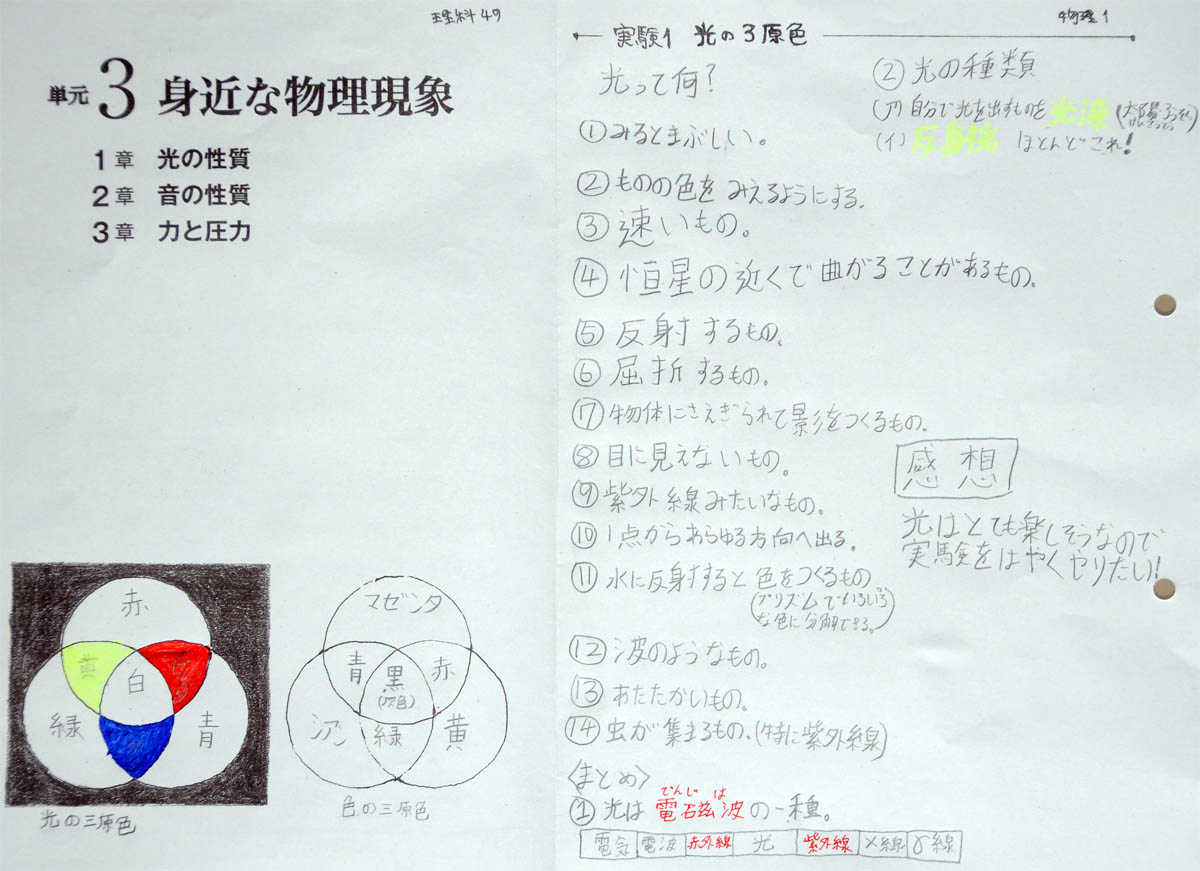 理科49
単元 3 身近な物理現象
1章 光の性質
2章 音の性質
3章 力と圧力
赤
黄
マゼンタ
白
緑
青
シアン
光の三原色
マゼンタ
青
赤
黒
(灰色)
シアン
緑
黄
色の三原色
物理1
実験1 光の3原色
光って何?
①みるとまぶしい。
②ものの色をみえるようにする。
③速いもの。
④恒星の近くで曲がることがあるもの。
⑤反射するもの。
⑥屈折するもの。
⑦物体にさえぎられて影をつくるもの。
⑧目に見えないもの。
⑨紫外線みたいなもの。
⑩1点からあらゆる方向へ出る。
⑪水に反射すると色をつくるもの
(プリズムでいろいろ
な色に分解できる。)
⑫波のようなもの。
⑬あたたかいもの。
⑭虫が集まるもの.(特に紫外線)
〈まとめ〉
でんじは
①光は電磁波の一種。
電気 電波 赤外線 光 紫外線 X線 γ線
②光の種類
(ア)自分で光を出すものを光源
(イ)反射 ほとんどこれ!
感想
光はとても楽しそうなので
実験をはやくやりたい!